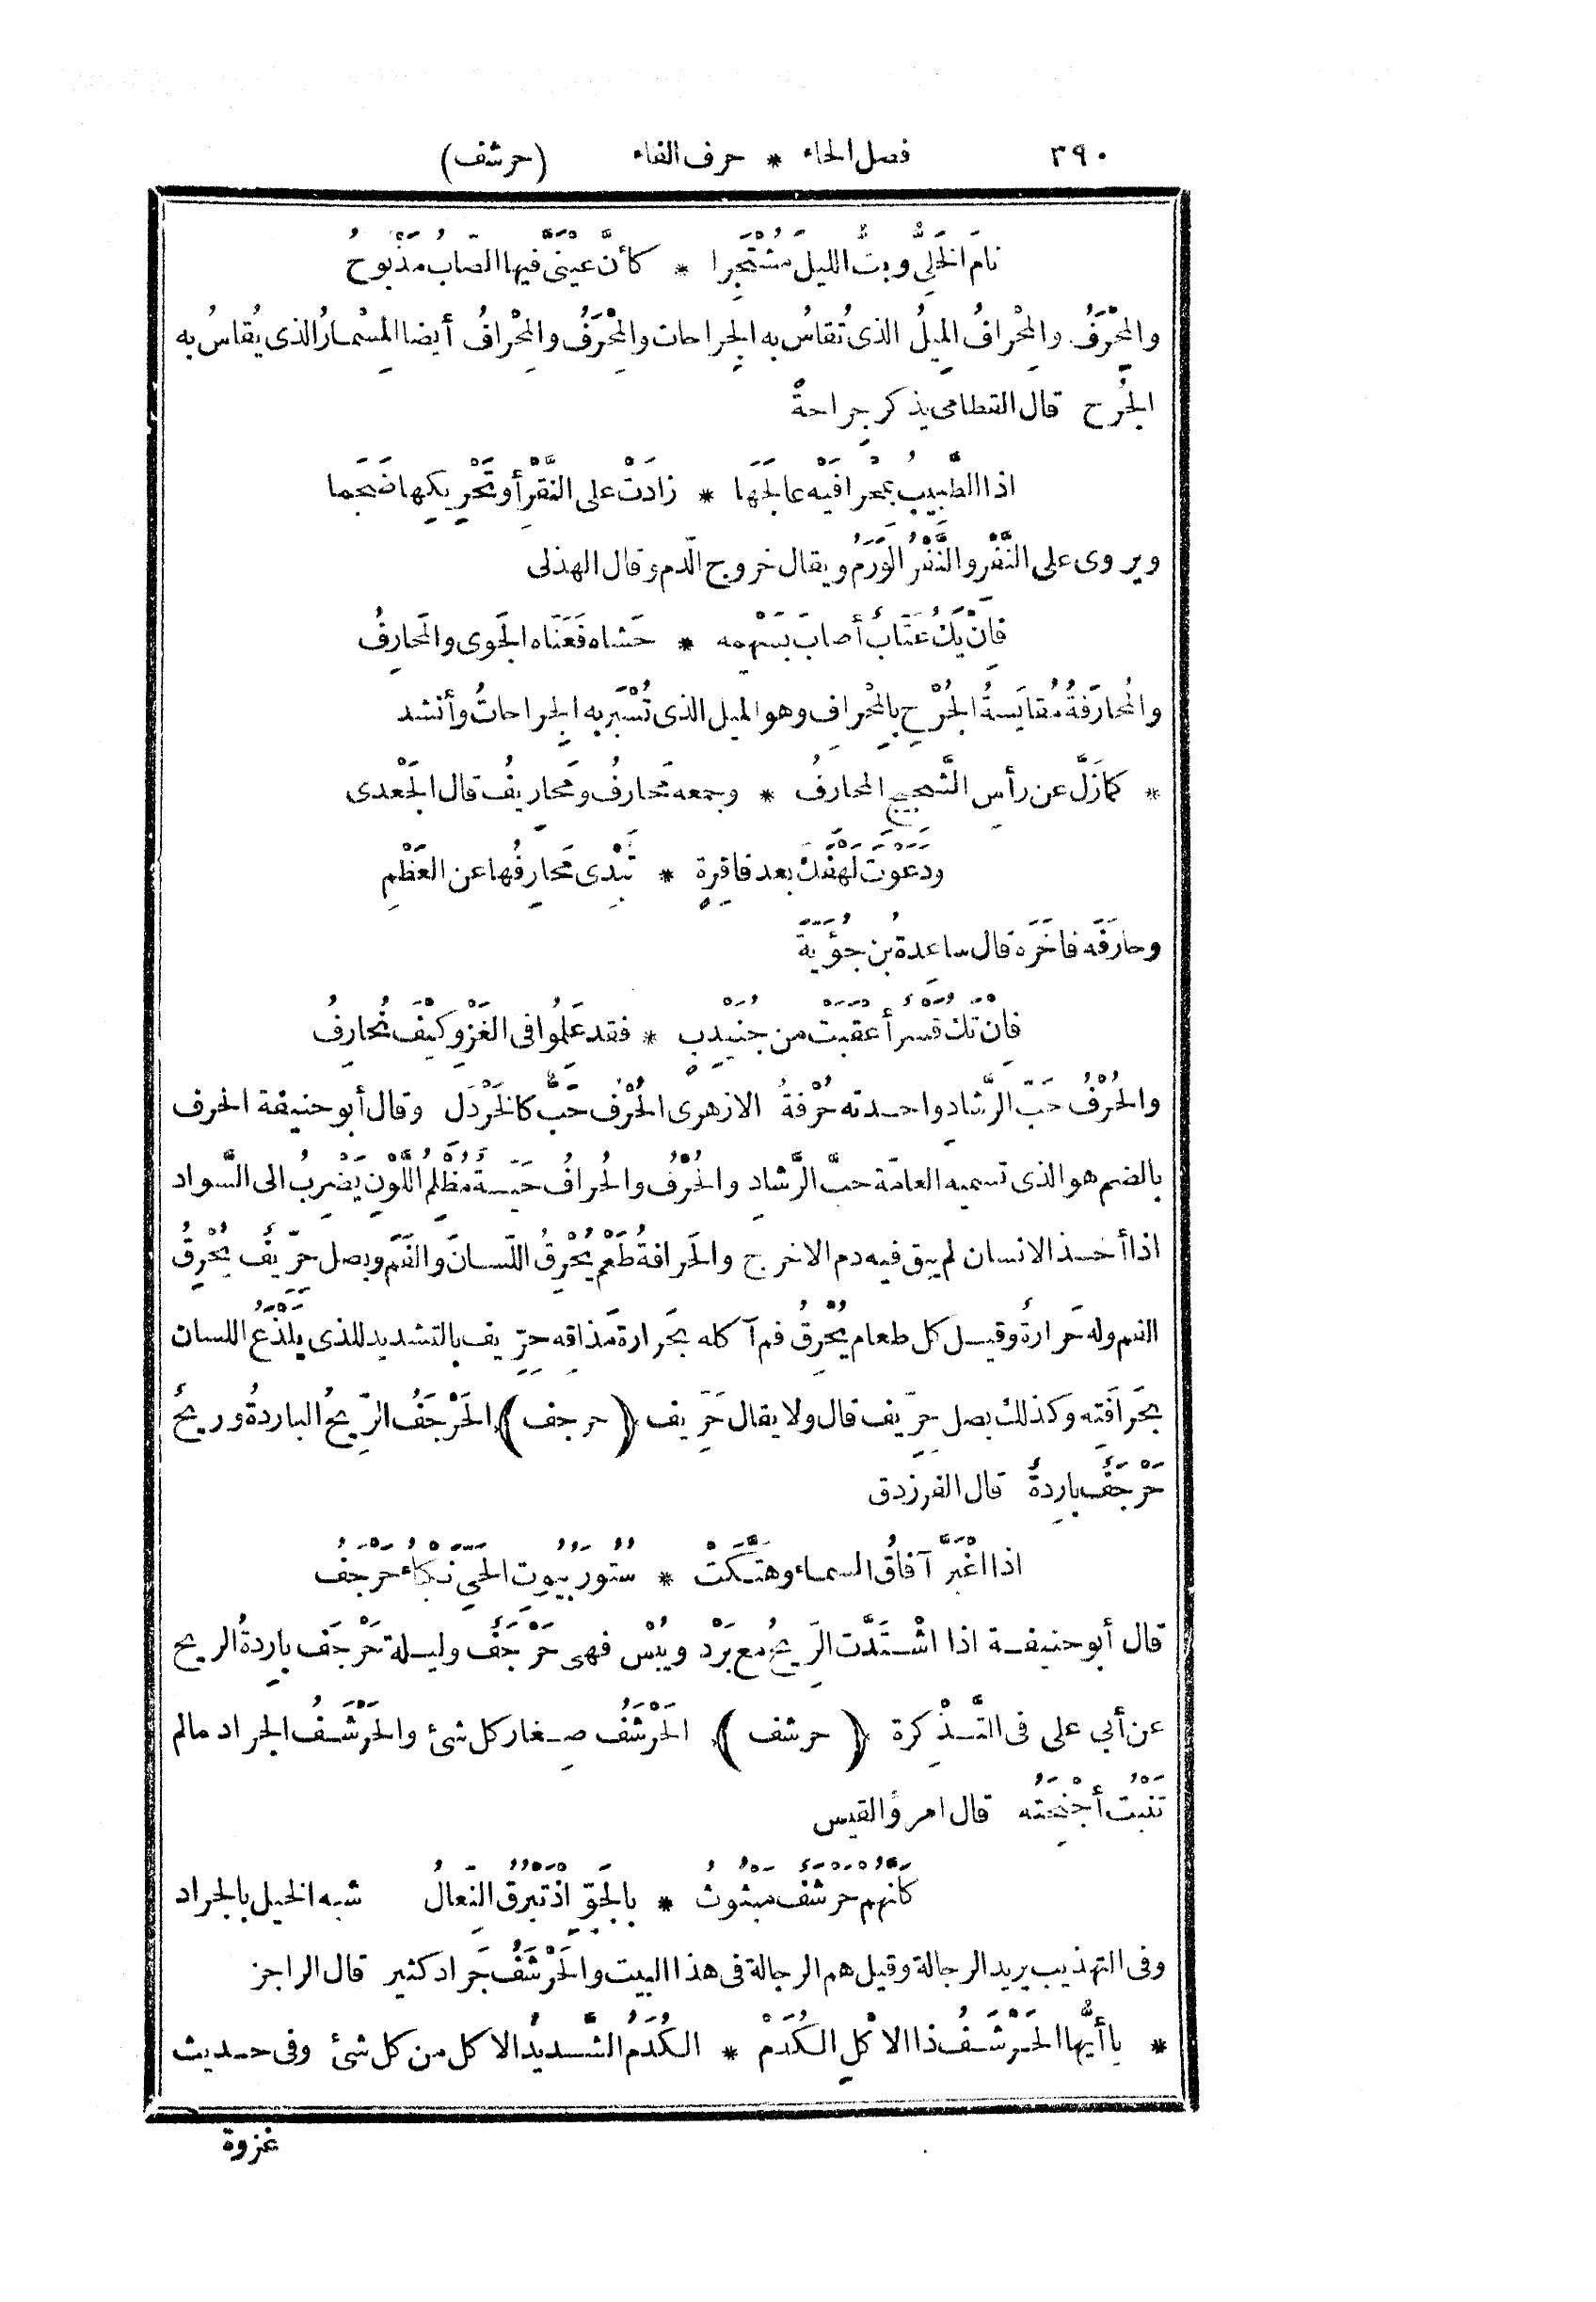 ٣٩٠ فصل الحاء * حرف الفاء (حرشف)
نامَ الخَلِيُّ وبتُّ الليلَ مُشْتَجِرا * كأنَّ عيْنَيَّ فيها الصّابُ مَذْبوحُ
والمِحْرَفُ والمِحْرافُ المِيلُ الذى تُقاسُ به الجِراحات والمِحْرَفُ والمِحْرافُ أيضا المِسْمارُ الذى يُقاسُ به
الجُرح قال القطامى يذكر جِراحةً
اذا الطَّبِيبُ بمِحْرافَيْه عالَجَهَا * زادَتْ على النَّقْرِ أو تَحْرِيكِها ضَجَما
ويروى على النَّفْر والنَّفْرُ الوَرَمُ ويقال خروج الدّم وقال الهذلى
فَاِنْ يَكُ عَتّابٌ أصابَ بسَهْمِه * حَشاه فَعَنّاه الجَوى والمَحارِفُ
والمُحارَفةُ مُقايَسةُ الجُرْحِ بالمِحْرافِ وهو الميل الذى تُسْبَر به الجِراحاتُ وأنشد
* كمازَلَّ عن رأسِ الشَّجيجِ المحارفُ * وجمعه مَحارفُ ومَحاريفُ قال الجَعْدى
ودَعَوْتَ لَهْفَكَ بعد فاقِرةٍ * تُبْدى مَحارِفُها عن العَظْمِ
وحارَفَه فاخَرَه قال ساعِدةُ بن جُؤَيّةَ
فاِنْ تَكُ قَسْرٌ أعقَبَتْ من جُنَيْدِبٍ * فقد عَلِمُوا فى الغَزْوِ كيْفَ نُحارِفُ
والحُرْفُ حَبّ الرَّشادِ واحدته حُرْفةُ الازهرى الحُرْف حَبٌّ كالخَرْدَل وقال أبو حنيفة الحرف
بالضم هو الذى تسميه العامّة حبَّ الرَّشادِ والحُرْفُ والحُرافُ حَيّةٌ مُظْلِمُ اللَّوْنِ يَضْرِبُ الى السَّواد
اذا أخذ الانسان لم يبق فيه دم الا خرج والحَرافةُ طَعْمٌ يُحْرِقُ اللّسانَ والفَمَ وبصل حِرِّيفٌ يُحْرِقُ
الفم وله حَرارةٌ وقيل كل طعام يُحْرِقُ فم آكله بحَرارة مَذاقِه حِرِّيف بالتشديد للذى يَلْذَعُ اللسان
بحَرافَتِه وكذلك بصل حِرِّيف قال ولا يقال حَرِّيف (حرجف) الحَرْجَفُ الرّيحُ الباردةُ وريحٌ
حَرْجَفٌ باردةٌ قال الفرزدق
اذا اغْبَرَّ آفاقُ السماء وهَتَّكَتْ * سُتُورَ بُيُوتِ الحَيِّ نَكْباءُ حَرْجَفُ
قال أبو حنيفة اذا اشْتَدَّت الرِّيحُ مع بَرْد ويُبْس فهى حَرْجَفٌ وليلة حَرْجَف بارِدةُ الريح
عن أبي على فى التَّذْكِرة (حرشف) الحَرْشَفُ صِغار كل شئ والحَرْشَفُ الجراد مالم
تَنْبُت أجْنِحَتُه قال امرؤ القيس
كأنَّهُمْ حَرْشَفٌ مَبْثُوثُ * بالجَوِّ اِذْ تَبْرُقُ النِّعالُ شبه الخيل بالجراد
وفى التهذيب يريد الرجالة وقيل هم الرجالة فى هذا البيت والحَرْشَفُ جَراد كثير قال الراجز
* ياأيُّها الحَرْشَفُ ذا الاَكْلِ الكُدَمْ * الكُدَمُ الشَّديدُ الاكل من كل شئ وفى حديث
غزوة